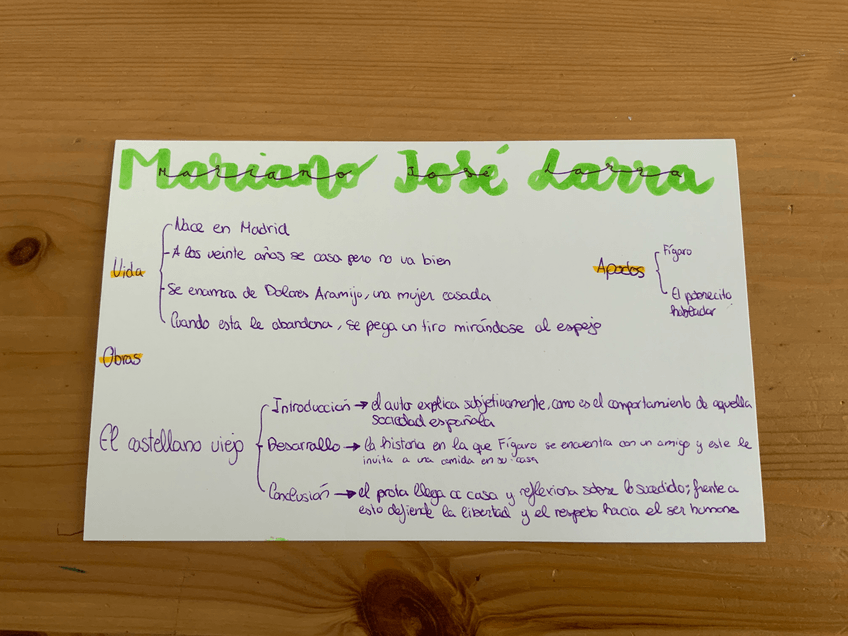 Mariano José Larra
Vida
Nace en Madrid
A los veinte años se casa pero no va bien
Se enamora de Dolores Aramijo, una mujer casada
Cuando esta le abandona, se pega un tiro mirándose al espejo
Apodos
Fígaro
El pobrecito
hablador
Obras
El castellano viejo
Introducción → el autor explica subjetivamente, como es el comportamiento de aquella
sociedad española
Desarrollo → la historia en la que Fígaro se encuentra con un amigo y este le
invita a una comida en su casa
Conclusión → el prota llega a casa y reflexiona sobre lo sucedido; frente a
esto defiende la libertad y el respeto hacia el ser humano